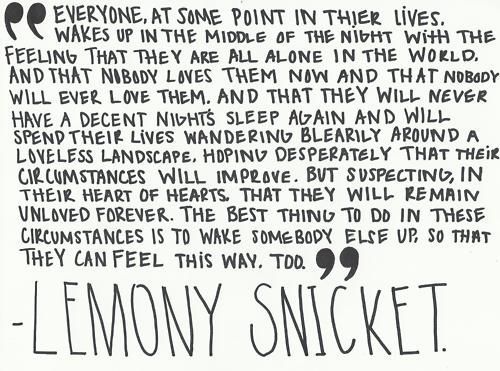 ❝ EVERYONE, AT SOME POINT IN THIER LIVES.
WAKES UP IN THE MIDDLE OF THE NIGHT WITH THE
FEELING THAT THEY ARE ALL ALONE IN THE WORLD.
AND THAT NOBODY LOVES THEM NOW AND THAT NOBODY
WILL EVER LOVE THEM. AND THAT THEY WILL NEVER
HAVE A DECENT NIGHT'S SLEEP AGAIN AND WILL
SPEND THEIR LIVES WANDERING BLEARILY AROUND A
LOVELESS LANDSCAPE. HOPING DESPERATELY THAT THEIR
CIRCUMSTANCES WILL IMPROVE. BUT SUSPECTING, IN
THEIR HEART OF HEARTS. THAT THEY WILL REMAIN
UNLOVED FOREVER. THE BEST THING TO DO IN THESE
CIRCUMSTANCES IS TO WAKE SOMEBODY ELSE UP, SO THAT
THEY CAN FEEL THIS WAY. TOO. ❞
-LEMONY SNICKET.